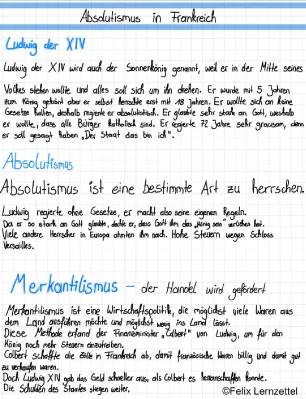 Absolutismus in Frankreich
Ludwig der XIV
Ludwig der XIV wird auch der Sonnenkönig genannt, weil er in der Mitte seines
Volkes stehen wollte und alles soll sich um ihn drehen. Er wurde mit 5 Jahren
zum König gekrönt aber er selbst herrschte erst mit 18 Jahren. Er wollte sich an keine
Gesetze halten, deshalb regierte er absolutistisch. Er glaubte sehr stark an Gott, weshalb
er wollte, dass alle Bürger Katholisch sind. Er regierte 72 Jahre sehr grausam, denn
er soll gesagt haben „Der Staat das bin ich".
Absolutismus
Absolutismus ist eine bestimmte Art zu herrschen.
Ludwig regierte ohne Gesetze, er macht also seine eigenen Regeln.
Da er so stark an Gott glaubte, dachte er, dass Gott ihm das „König sein" verliehen hat.
Viele andere Herrscher in Europa ahmten ihn nach. Hohe Steuern wegen Schloss
Versailles.
Merkantilismus – der Handel wird gefördert
Merkantilismus ist eine Wirtschaftspolitik, die möglichst viele Waren aus
dem Land ausführen möchte und möglichst wenig ins Land lässt.
Diese Methode erfand der Finanzminister „Colbert" von Ludwig, um für den
König noch mehr Steuern einzutreiben.
Colbert schaffte die Zölle in Frankreich ab, damit französische Waren billig und damit gut
zu verkaufen waren.
Doch Ludwig XIV gab das Geld schneller aus, als Colbert es heranschaffen konnte.
Die Schulden des Staates stiegen weiter.
©Felix Lernzettel